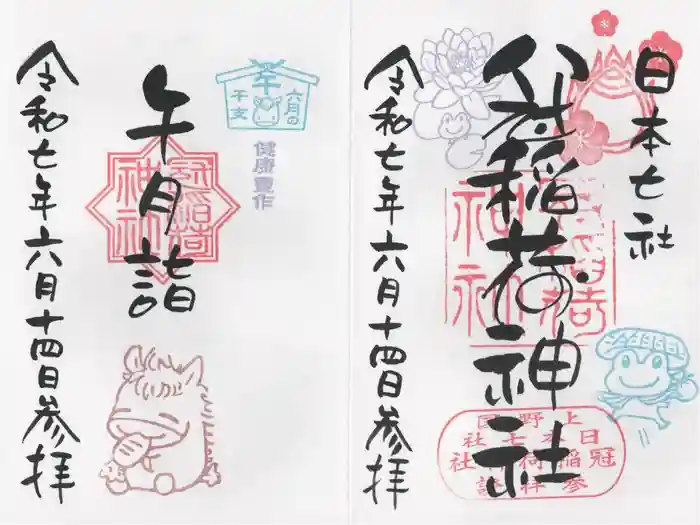 日本七社
冠稲荷神社
令和七年六月十四日参拝
上野国
日本七社
冠稲荷神社
参拝記
午
六月の
干支
健康豊作
午月詣
冠稲荷
神社
令和七年六月十四日参拝